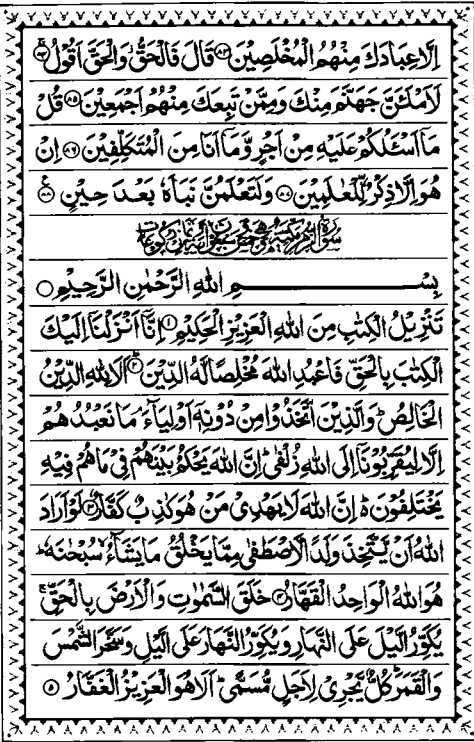 اِلَّا عِبَادَكَ مِنْهُمُ الْمُخْلَصِيْنَ ﴿۸۳﴾ قَالَ فَالْحَقُّ وَالْحَقَّ اَقُوْلُ ﴿۸۴﴾
لَاَمْلَئَنَّ جَهَنَّمَ مِنْكَ وَمِمَّنْ تَبِعَكَ مِنْهُمْ اَجْمَعِيْنَ ﴿۸۵﴾ قُلْ
مَاۤ اَسْـَٔلُكُمْ عَلَيْهِ مِنْ اَجْرٍ وَّمَاۤ اَنَا مِنَ الْمُتَكَلِّفِيْنَ ﴿۸۶﴾ اِنْ
هُوَ اِلَّا ذِكْرٌ لِّلْعٰلَمِيْنَ ﴿۸۷﴾ وَلَتَعْلَمُنَّ نَبَاَهٗ بَعْدَ حِيْنٍ ﴿۸۸﴾
بِسْمِ اللهِ الرَّحْمٰنِ الرَّحِيْمِ ○
تَنْزِيْلُ الْكِتٰبِ مِنَ اللهِ الْعَزِيْزِ الْحَكِيْمِ ﴿۱﴾ اِنَّاۤ اَنْزَلْنَاۤ اِلَيْكَ
الْكِتٰبَ بِالْحَقِّ فَاعْبُدِ اللهَ مُخْلِصًا لَّهُ الدِّيْنَ ﴿۲﴾ اَلَا لِلّٰهِ الدِّيْنُ
الْخَالِصُ ؕ وَالَّذِيْنَ اتَّخَذُوْا مِنْ دُوْنِهٖۤ اَوْلِيَآءَ ۘ مَا نَعْبُدُهُمْ
اِلَّا لِيُقَرِّبُوْنَاۤ اِلَى اللهِ زُلْفٰى ؕ اِنَّ اللهَ يَحْكُمُ بَيْنَهُمْ فِيْ مَا هُمْ فِيْهِ
يَخْتَلِفُوْنَ ؕ اِنَّ اللهَ لَا يَهْدِيْ مَنْ هُوَ كٰذِبٌ كَفَّارٌ ﴿۳﴾ لَوْ اَرَادَ
اللهُ اَنْ يَّتَّخِذَ وَلَدًا لَّاصْطَفٰى مِمَّا يَخْلُقُ مَا يَشَآءُ ۙ سُبْحٰنَهٗ ؕ
هُوَ اللهُ الْوَاحِدُ الْقَهَّارُ ﴿۴﴾ خَلَقَ السَّمٰوٰتِ وَالْاَرْضَ بِالْحَقِّ ۚ
يُكَوِّرُ الَّيْلَ عَلَى النَّهَارِ وَيُكَوِّرُ النَّهَارَ عَلَى الَّيْلِ وَسَخَّرَ الشَّمْسَ
وَالْقَمَرَ ؕ كُلٌّ يَّجْرِيْ لِاَجَلٍ مُّسَمًّى ؕ اَلَا هُوَ الْعَزِيْزُ الْغَفَّارُ ﴿۵﴾